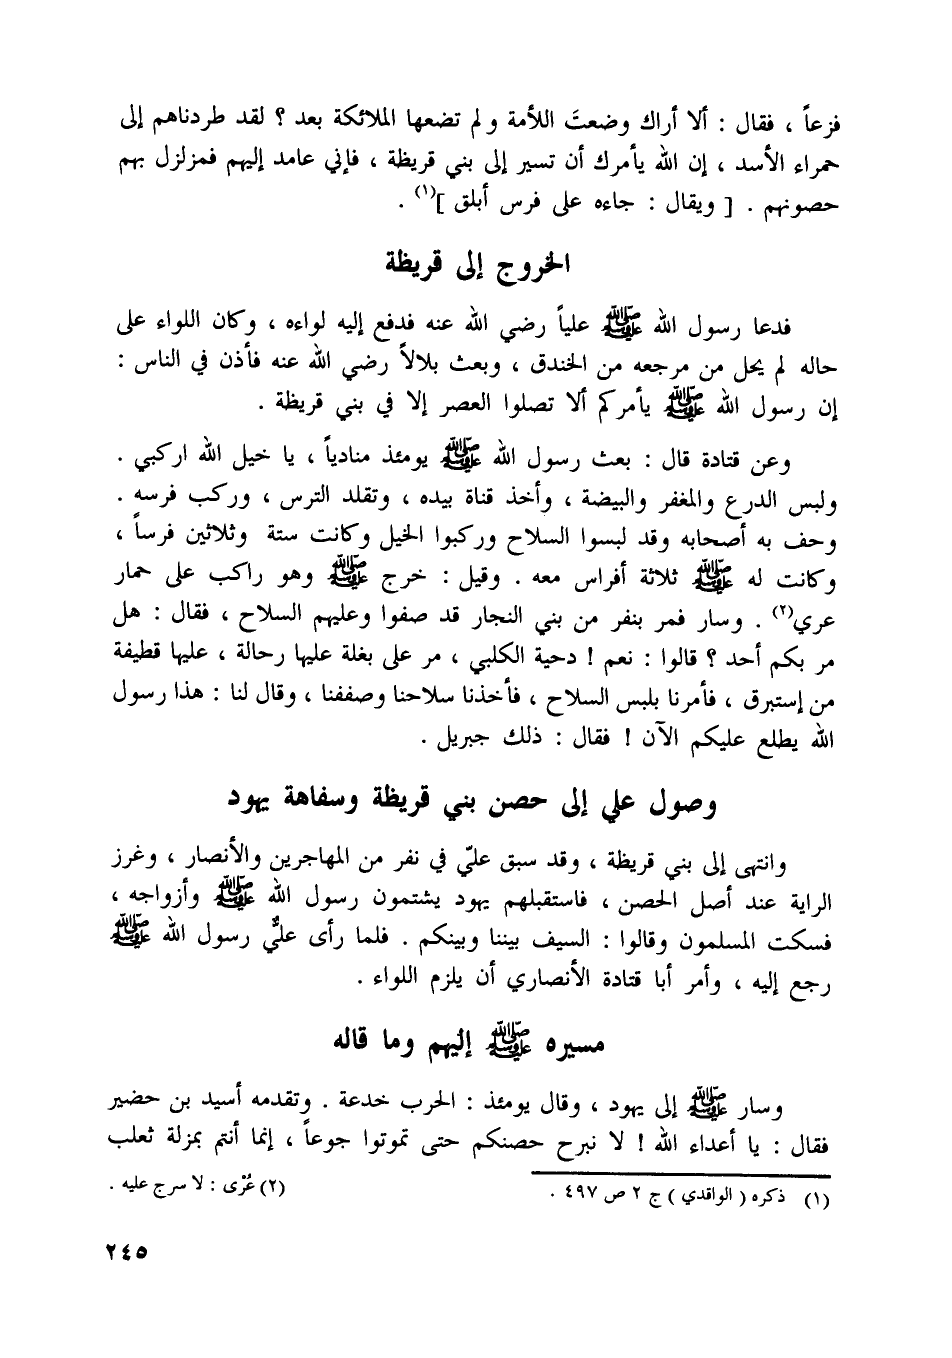 فزعاً ، فقال : ألا أراك وضعتَ اللأمة ولم تضعها الملائكة بعد ؟ لقد طردناهم إلى
حمراء الأسد ، إن الله يأمرك أن تسير إلى بني قريظة ، فإني عامد إليهم فمزلزل بهم
حصونهم . [ ويقال : جاءه على فرس أبلق ](١) .
الخروج إلى قريظة
فدعا رسول الله ﷺ علياً رضي الله عنه فدفع إليه لواءه ، وكان اللواء على
حاله لم يحل من مرجعه من الخندق ، وبعث بلالاً رضي الله عنه فأذن في الناس :
إن رسول الله ﷺ يأمركم ألا تصلوا العصر إلا في بني قريظة .
وعن قتادة قال : بعث رسول الله ﷺ يومئذ منادياً ، يا خيل الله اركبي .
ولبس الدرع والمغفر والبيضة ، وأخذ قناة بيده ، وتقلد الترس ، وركب فرسه .
وحف به أصحابه وقد لبسوا السلاح وركبوا الخيل وكانت ستة وثلاثين فرساً ،
وكانت له ﷺ ثلاثة أفراس معه . وقيل : خرج ﷺ وهو راكب على حمار
عري(٢) . وسار فمر بنفر من بني النجار قد صفوا وعليهم السلاح ، فقال : هل
مر بكم أحد ؟ قالوا : نعم ! دحية الكلبي ، مر على بغلة عليها رحالة ، عليها قطيفة
من إستبرق ، فأمرنا بلبس السلاح ، فأخذنا سلاحنا وصففنا ، وقال لنا : هذا رسول
الله يطلع عليكم الآن ! فقال : ذلك جبريل .
وصول علي إلى حصن بني قريظة وسفاهة يهود
وانتهى إلى بني قريظة ، وقد سبق عليّ في نفر من المهاجرين والأنصار ، وغرز
الراية عند أصل الحصن ، فاستقبلهم يهود يشتمون رسول الله ﷺ وأزواجه ،
فسكت المسلمون وقالوا : السيف بيننا وبينكم . فلما رأى عليٌّ رسول الله ﷺ
رجع إليه ، وأمر أبا قتادة الأنصاري أن يلزم اللواء .
مسيره ﷺ إليهم وما قاله
وسار ﷺ إلى يهود ، وقال يومئذ : الحرب خدعة . وتقدمه أسيد بن حضير
فقال : يا أعداء الله ! لا نبرح حصنكم حتى تموتوا جوعاً ، إنما أنتم بمزلة ثعلب
(١) ذكره ( الواقدي ) ج ٢ ص ٤٩٧ .
(٢) عُرْى : لا سرج عليه .
٢٤٥